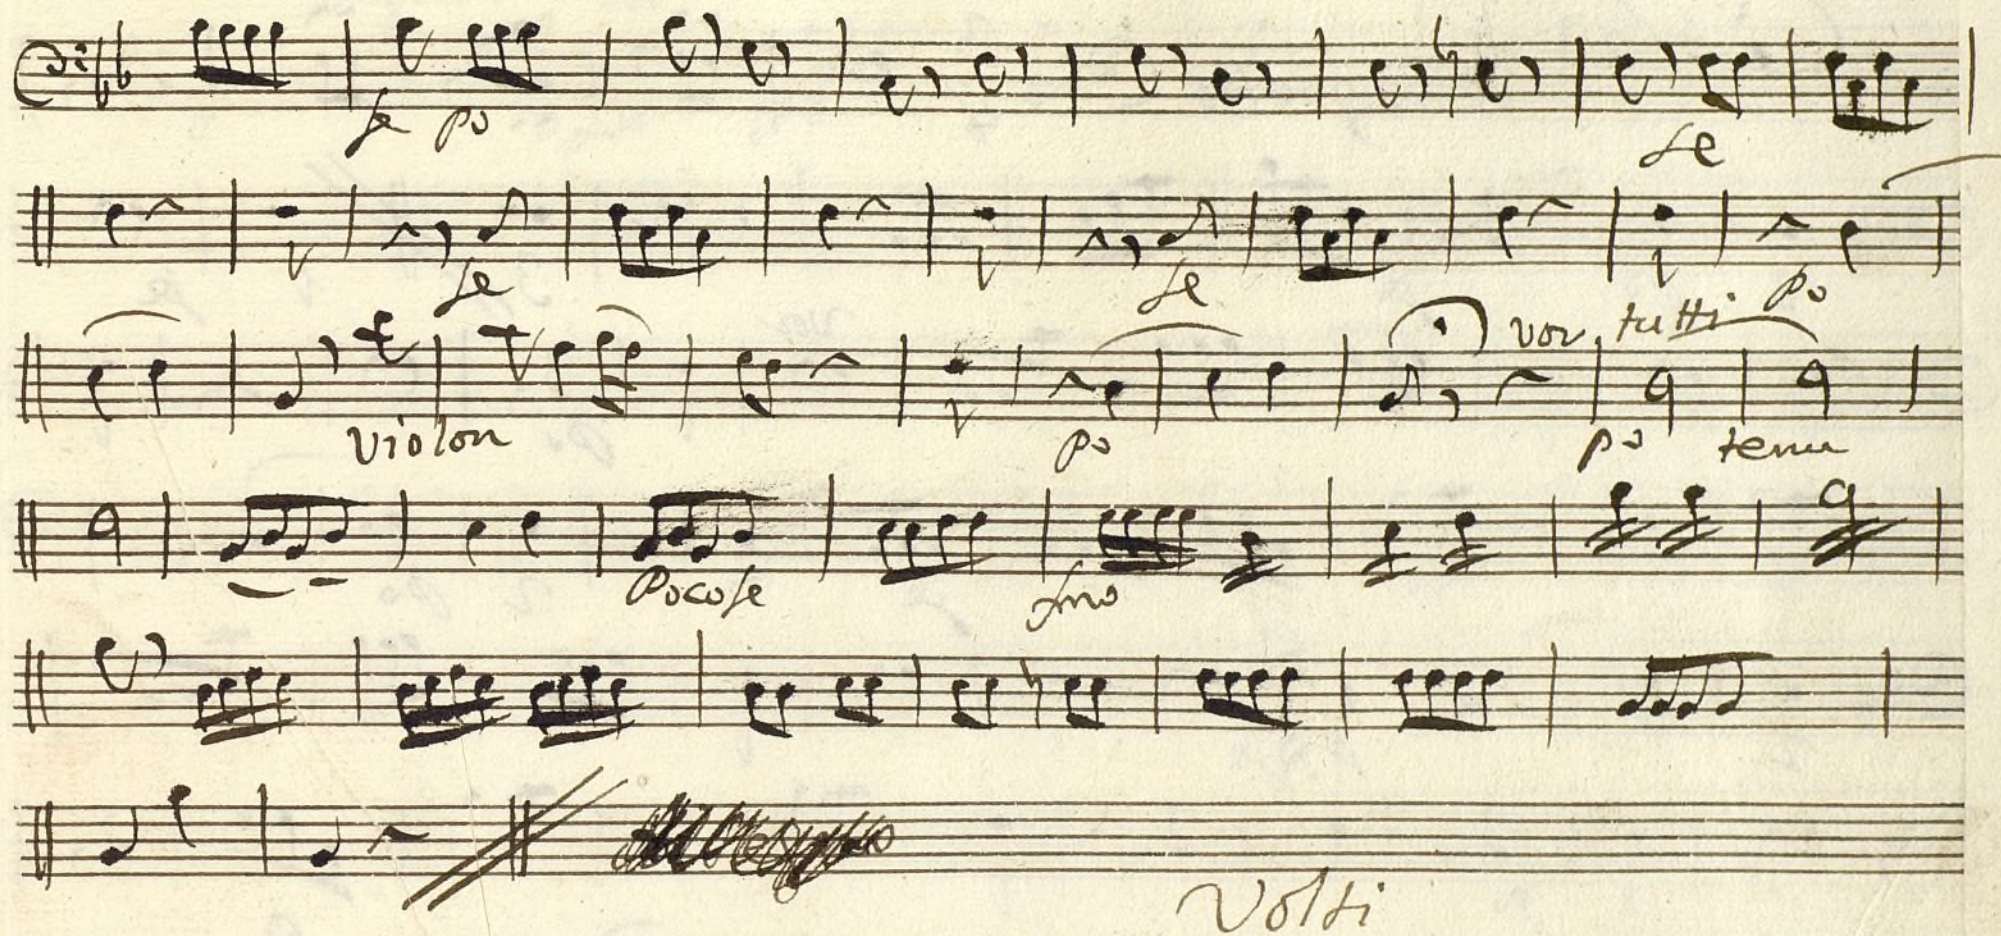 fe po
fe
fe fe po
vor tutti
violon po po tenu
Poco fe fmo
Volti